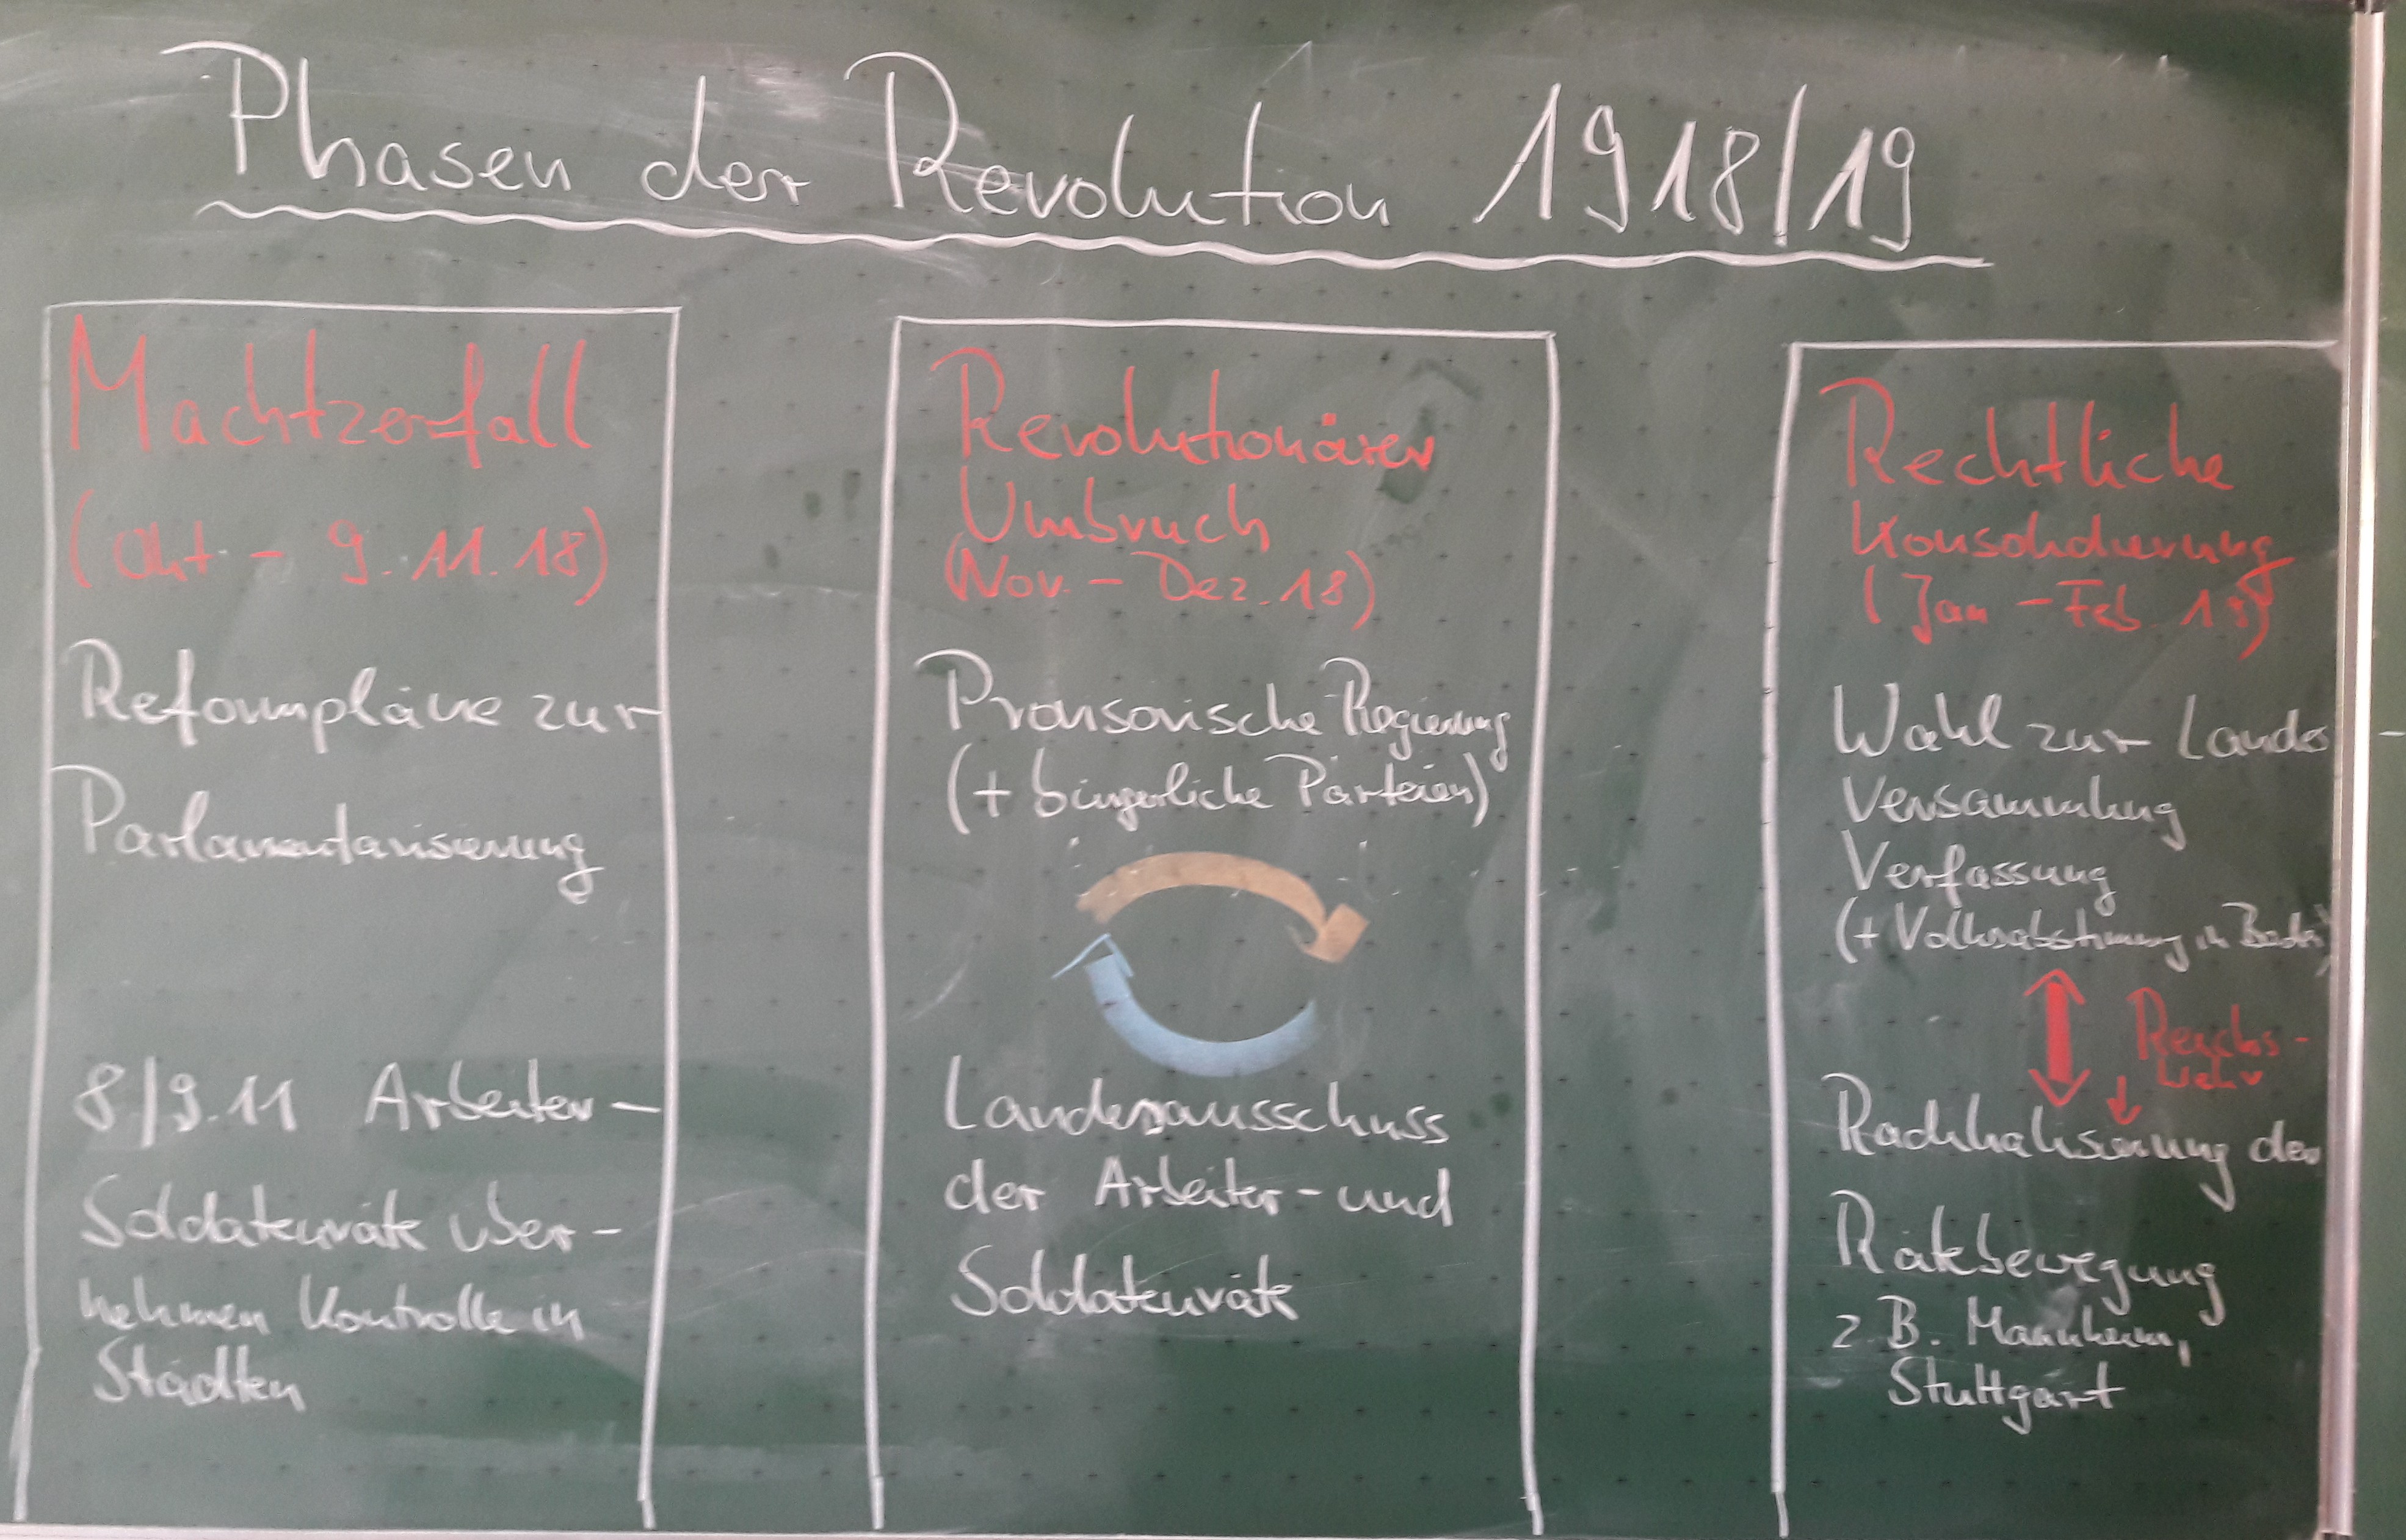 Phasen der Revolution 1918/19
Machtzerfall
(Okt. - 9.11.18)
Reformpläne zur
Parlamentarisierung
8/9.11 Arbeiter-
Soldatenräte über-
nehmen Kontrolle in
Städten
Revolutionärer
Umbruch
(Nov. - Dez. 18)
Provisorische Regierung
(+ bürgerliche Parteien)
Landesausschuss
der Arbeiter- und
Soldatenräte
Rechtliche
Konsolidierung
(Jan - Feb. 19)
Wahl zur Landes-
versammlung
Verfassung
(+ Volksabstimmung in Baden)
Reichs-
wehr
Radikalisierung der
Rätebewegung
z B. Mannheim,
Stuttgart